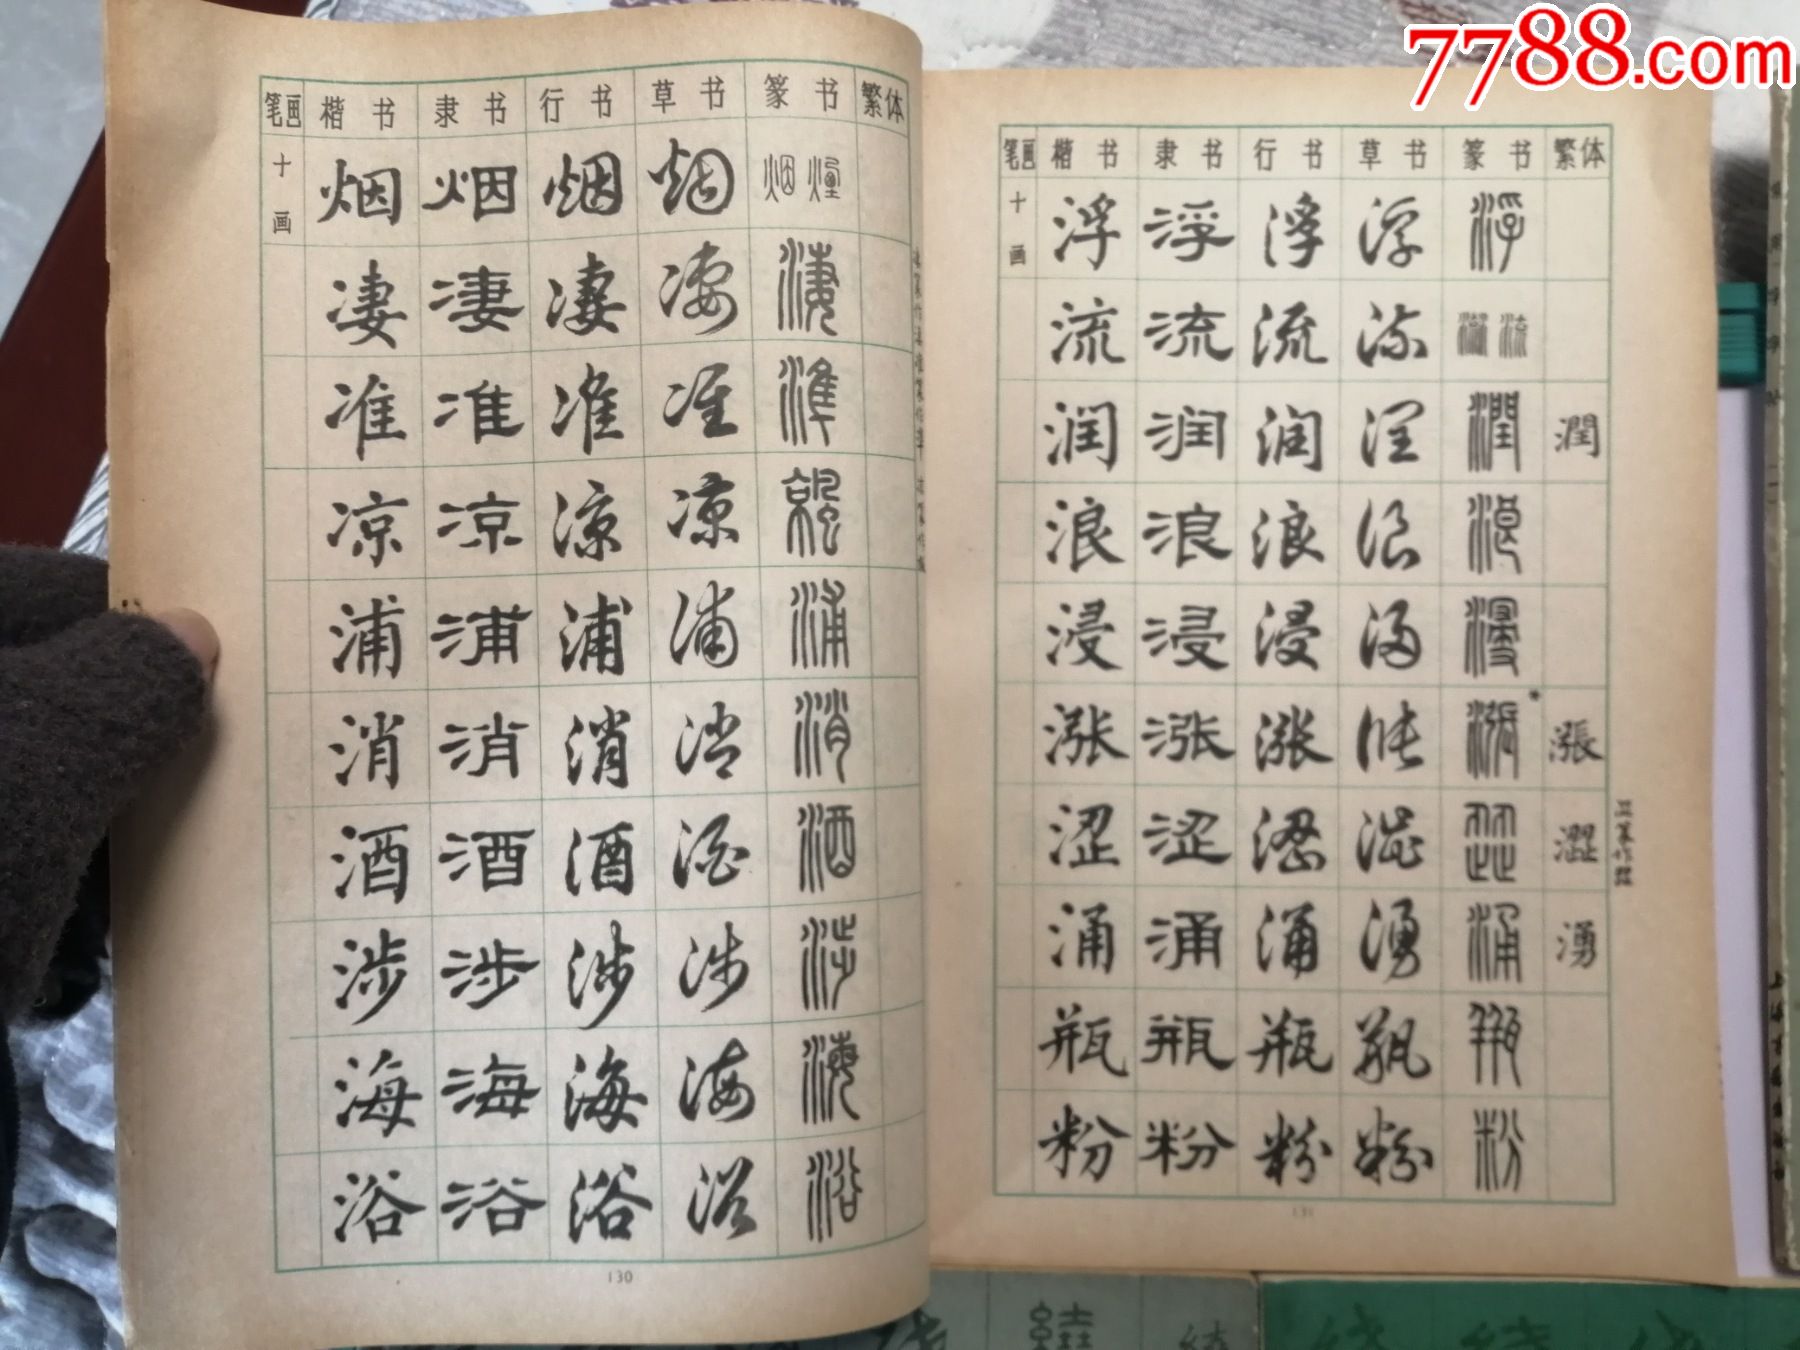 7788.com
笔画 楷书 隶书 行书 草书 篆书 繁体
十画 烟 烟 烟 烟 烟 煙
凄 凄 凄 凄 淒
准 准 准 准 準
凉 凉 凉 凉
浦 浦 浦 浦 浦
消 消 消 消 消
酒 酒 酒 酒 酒
涉 涉 涉 涉 涉
海 海 海 海 海
浴 浴 浴 浴 浴
130
笔画 楷书 隶书 行书 草书 篆书 繁体
十画 浮 浮 浮 浮 浮
流 流 流 流 流
润 润 润 润 潤 潤
浪 浪 浪 浪 浪
浸 浸 浸 浸 浸
涨 涨 涨 涨 漲 漲
涩 涩 涩 涩 澀
涌 涌 涌 湧 涌 湧
瓶 瓶 瓶 瓶 瓶
粉 粉 粉 粉 粉
131